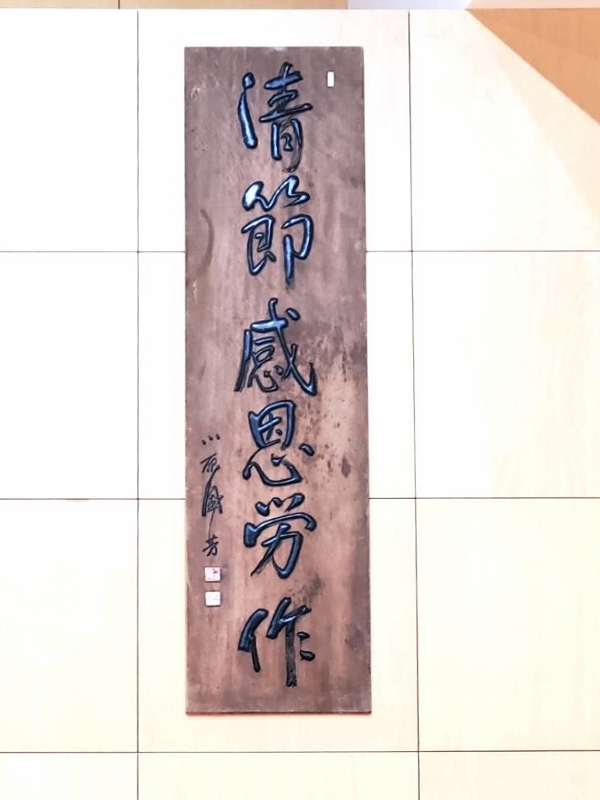 清節感恩労作
小原國芳